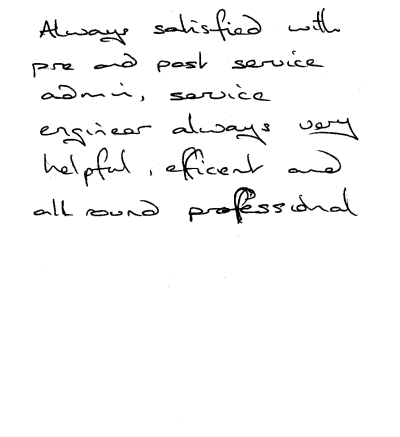 Always satisfied with
pre and post service
admin, service
engineer always very
helpful, efficent and
all round professional